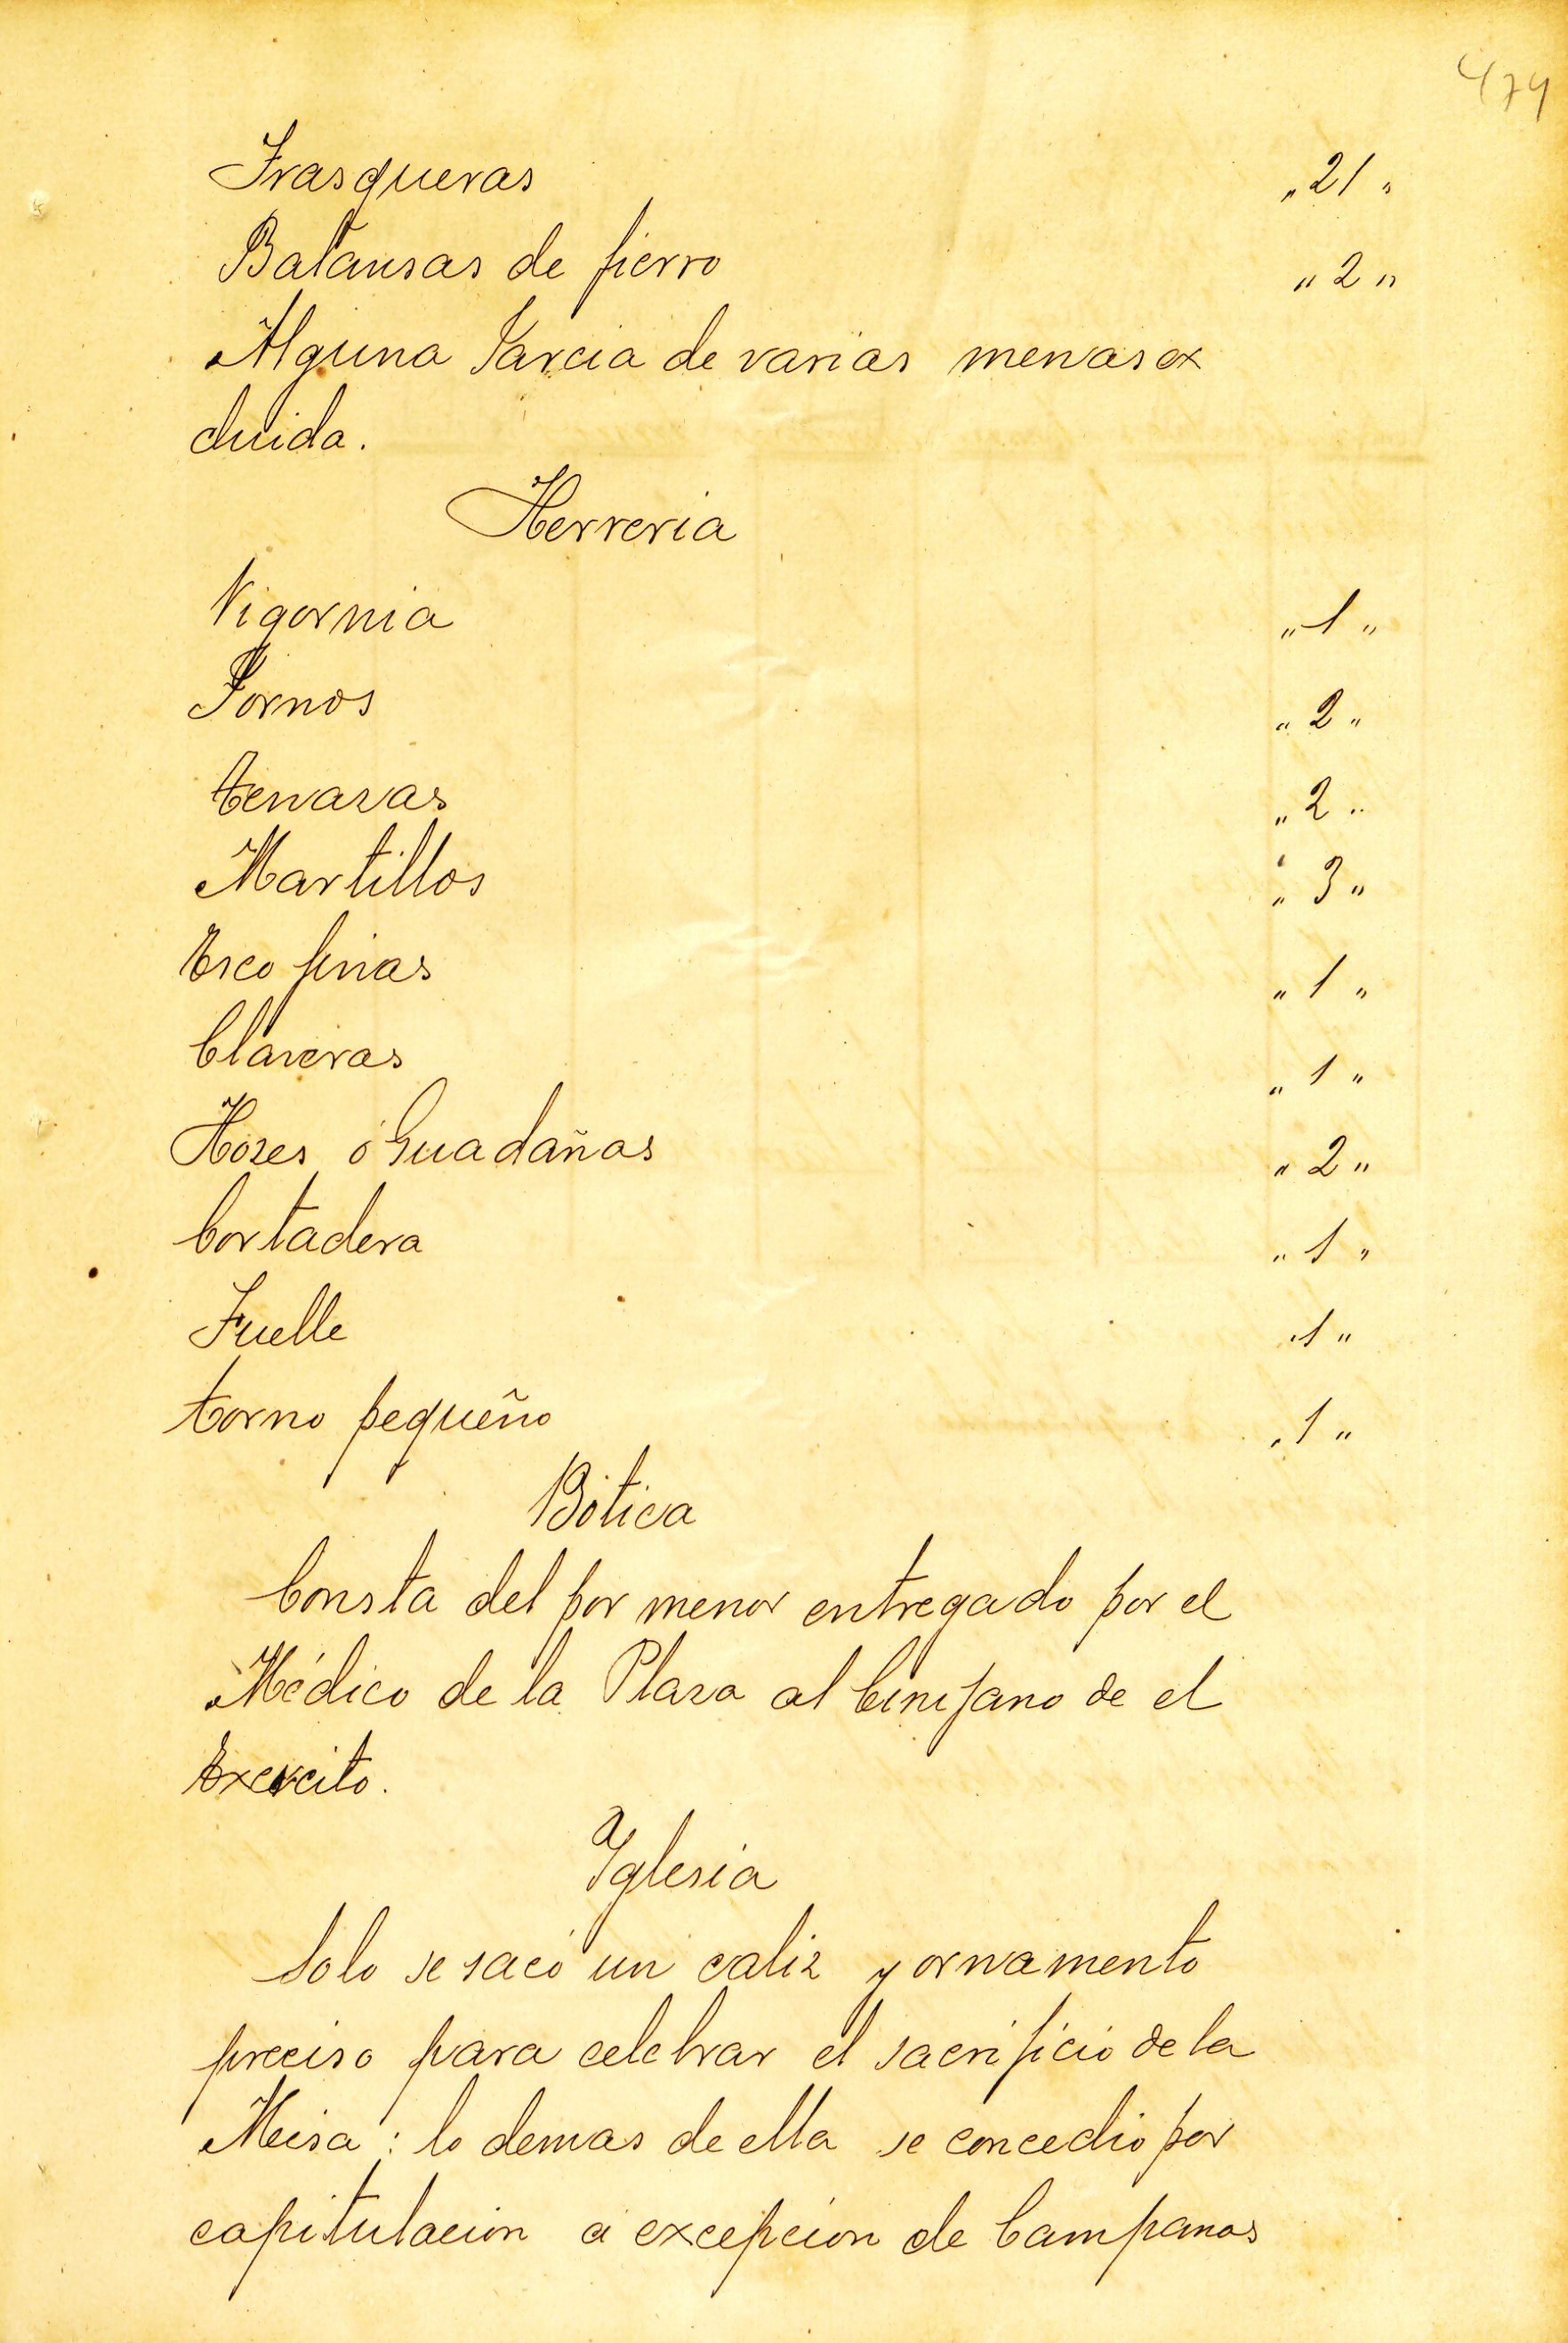 474
Frasqueras „21„
Balansas de fierro „2„
Alguna Jarcia de varias menas ex
cluida.
Herreria
Vigornia „1„
Tornos „2„
tenazas „2„
Martillos „3„
Escofinas „1„
Claveras „1„
Hozes ó Guadañas „2„
Cortadera „1„
Fuelle „1„
torno pequeño „1„
Botica
Consta del por menor entregado por el
Médico de la Plaza al Cirujano de el
Exercito.
Yglesia
Solo se sacó un caliz y ornamento
preciso para celebrar el sacrificio de la
Misa: lo demas de ella se concedio por
capitulacion a excepcion de Campanas